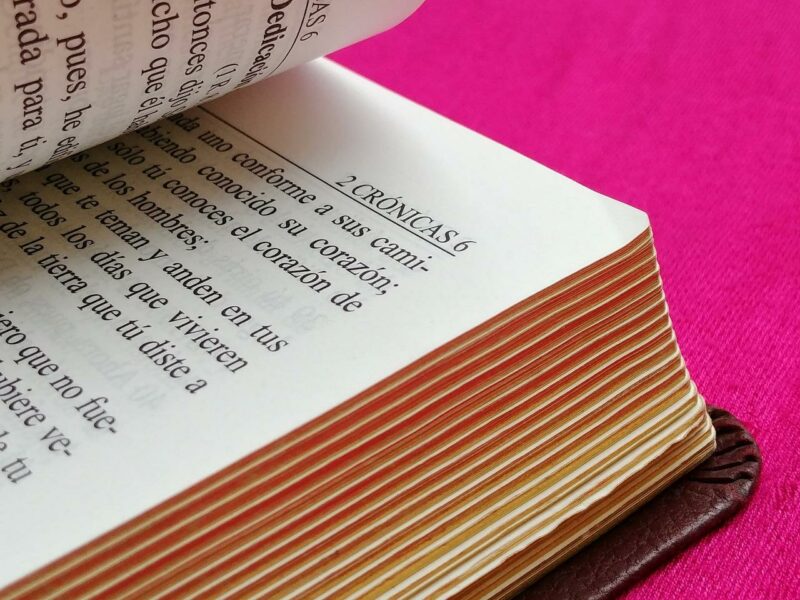 6
Dedicació
dijo
que él
pues, he
para ti, y
2 CRÓNICAS 6
uno conforme a sus cami-
biendo conocido su corazón;
sólo tú conoces el corazón de
de los hombres;
que te teman y anden en tus
todos los días que vivieren
de la tierra que tú diste a
ero que no fue-
ubiere ve-
tu